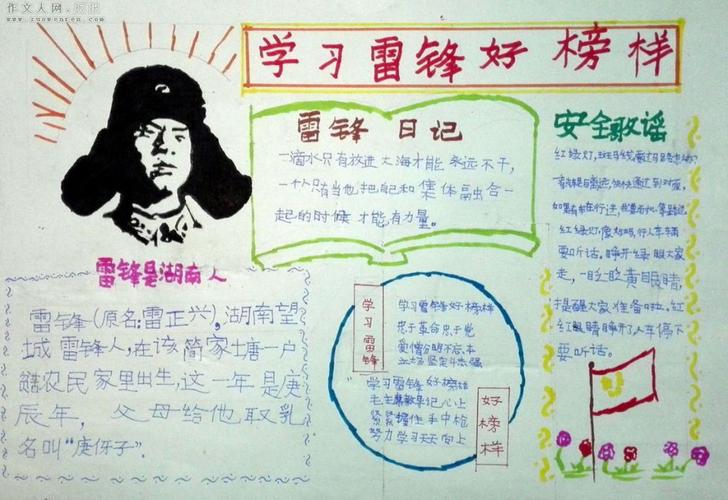 作文人网
www.zuowenren.com
学习雷锋好榜样
雷锋 日记
一滴水只有放进大海才能永远不干,
一个人只有当他把自己和集体融合一
起的时候才能有力量。
安全歌谣
红绿灯,
红绿灯,
要听话。睁开绿眼大家
走,一眨一眨黄眼睛,
提醒大家准备啦。红
红眼睛睁开了人车停下
要听话。
雷锋是湖南人
雷锋(原名:雷正兴),湖南望
城雷锋人,在该简家土唐一户
农民家里出生,这一年是庚
辰年,父母给他取乳
名叫“庚伢子”.
学习雷锋
学习雷锋好榜样
忠于革命忠于党
爱憎分明不忘本
立场坚定斗志强
学习雷锋好榜样
毛主席教导记心上
紧紧握住手中枪
努力学习天天向上
好榜样